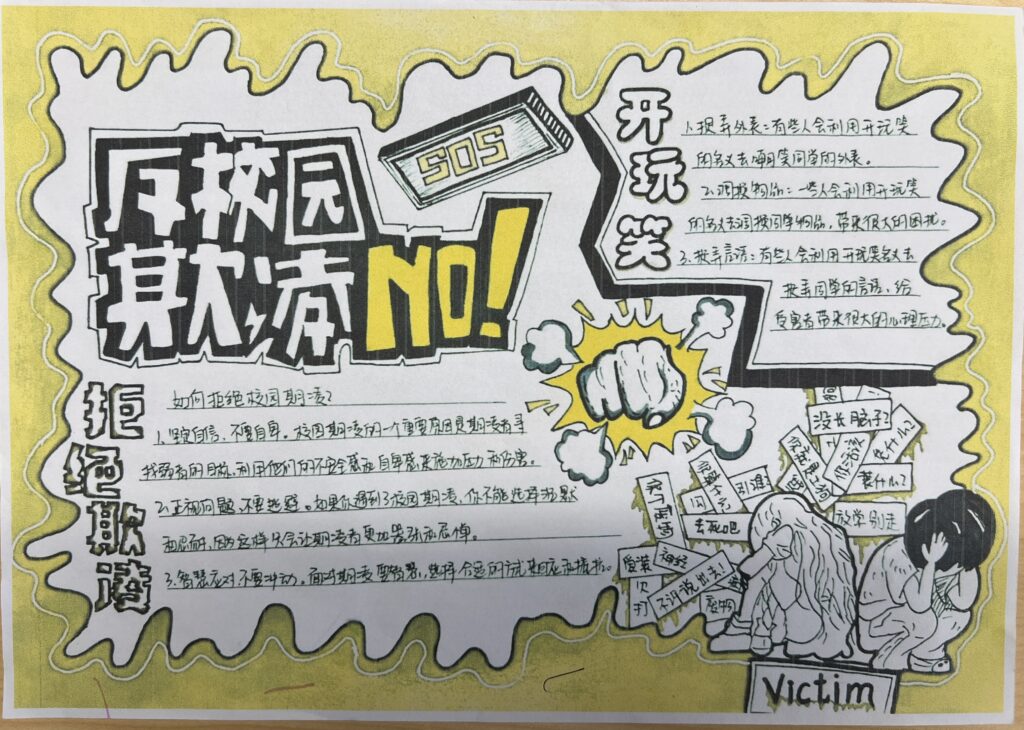 反校园
欺凌 NO!
SOS
开玩笑
1.捉弄外表:有些人会利用开玩笑
的名义去嘲笑同学的外表。
2.调换物品:一些人会利用开玩笑
的名义去调换同学物品,带来很大的困扰。
3.捉弄言语:有些人会利用开玩笑名义去
捉弄同学的言语,给
受害者带来很大的心理压力。
拒绝欺凌
如何拒绝校园期凌?
1.坚定自信,不要自卑。校园期凌的一个重要原因是期凌者寻
找弱者的目标,利用他们的不安全感和自卑感来施加压力和伤害。
2.正视问题,不要逃避。如果你遇到了校园期凌,你不能选择沉默
和忍耐,因为这样只会让期凌者更加嚣张和
3.智慧应对,不要冲动。面对期凌要智慧,选择合适的
没长脑子?
凭什么?
装什么?
放学别走
去死吧
闪
不许说出去!
神经
废物
Victim